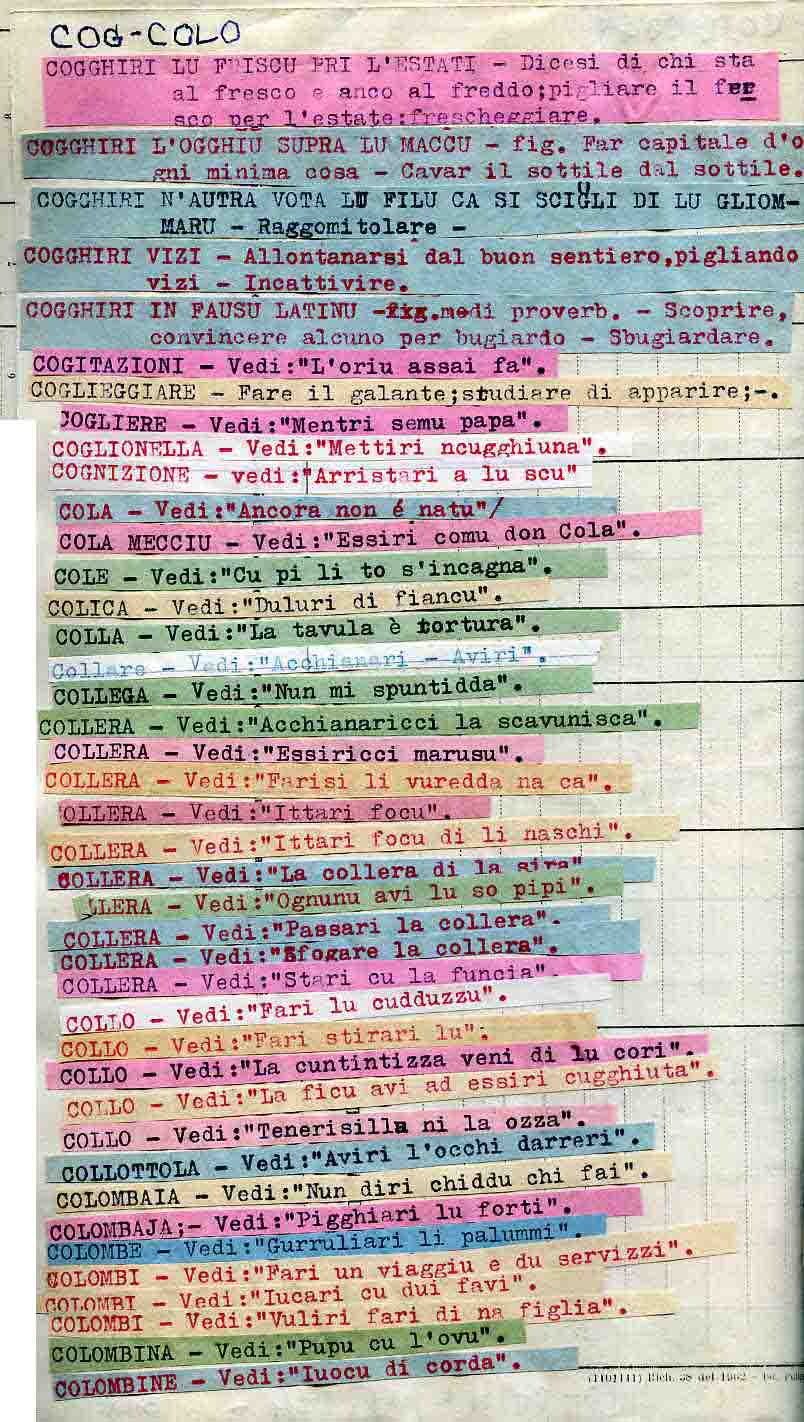 COG-COLO
COGGHIRI LU FRISCU PRI L'ESTATI - Dicesi di chi sta
al fresco e anco al freddo;pigliare il
sco per l'estate:frescheggiare.
COGGHIRI L'OGGHIU SUPRA LU MACCU - fig. Far capitale d'o
gni minima cosa - Cavar il sottile dal sottile.
COGGHIRI N'AUTRA VOTA LU FILU CA SI SCIGLI DI LU GLIOM-
MARU - Raggomitolare -
COGGHIRI VIZI - Allontanarsi dal buon sentiero,pigliando
vizi - Incattivire.
COGGHIRI IN FAUSU LATINU -fig.modi proverb. - Scoprire,
convincere alcuno per bugiardo - Sbugiardare.
COGITAZIONI - Vedi:"L'oriu assai fa".
COGLIEGGIARE - Fare il galante;studiare di apparire;-.
COGLIERE - Vedi:"Mentri semu papa".
COGLIONELLA - Vedi:"Mettiri ncugghiuna".
COGNIZIONE - vedi:"Arristari a lu scu"
COLA - Vedi:"Ancora non é natu"/
COLA MECCIU - Vedi:"Essiri comu don Cola".
COLE - Vedi:"Cu pi li to s'incagna".
COLICA - Vedi:"Duluri di fiancu".
COLLA - Vedi:"La tavula è tortura".
Collare - Vedi:"Acchianari - Aviri".
COLLEGA - Vedi:"Nun mi spuntidda".
COLLERA - Vedi:"Acchianaricci la scavunisca".
COLLERA - Vedi:"Essiricci marusu".
COLLERA - Vedi:"Farisi li vuredda na ca".
OLLERA - Vedi:"Ittari focu".
COLLERA - Vedi:"Ittari focu di li naschi".
COLLERA - Vedi:"La collera di la sira"
LLERA - Vedi:"Ognunu avi lu so pipi".
COLLERA - Vedi:"Passari la collera".
COLLERA - Vedi:"Sfogare la collera".
COLLERA - Vedi:"Stari cu la funcia".
COLLO - Vedi:"Fari lu cudduzzu".
COLLO - Vedi:"Fari stirari lu";
COLLO - Vedi:"La cuntintizza veni di lu cori".
COLLO - Vedi:"La ficu avi ad essiri cugghiuta".
COLLO - Vedi:"Tenerisilla ni la ozza".
COLLOTTOLA - Vedi:"Aviri l'occhi darreri".
COLOMBAIA - Vedi:"Nun diri chiddu chi fai".
COLOMBAJA;- Vedi:"Pigghiari lu forti".
COLOMBE - Vedi:"Gurruliari li palummi".
COLOMBI - Vedi:"Fari un viaggiu e du servizzi".
COLOMBI - Vedi:"Iucari cu dui favi".
COLOMBI - Vedi:"Vuliri fari di na figlia".
COLOMBINA - Vedi:"Pupu cu l'ovu".
COLOMBINE - Vedi:"Iuocu di corda".
Rich. 38 del 1962